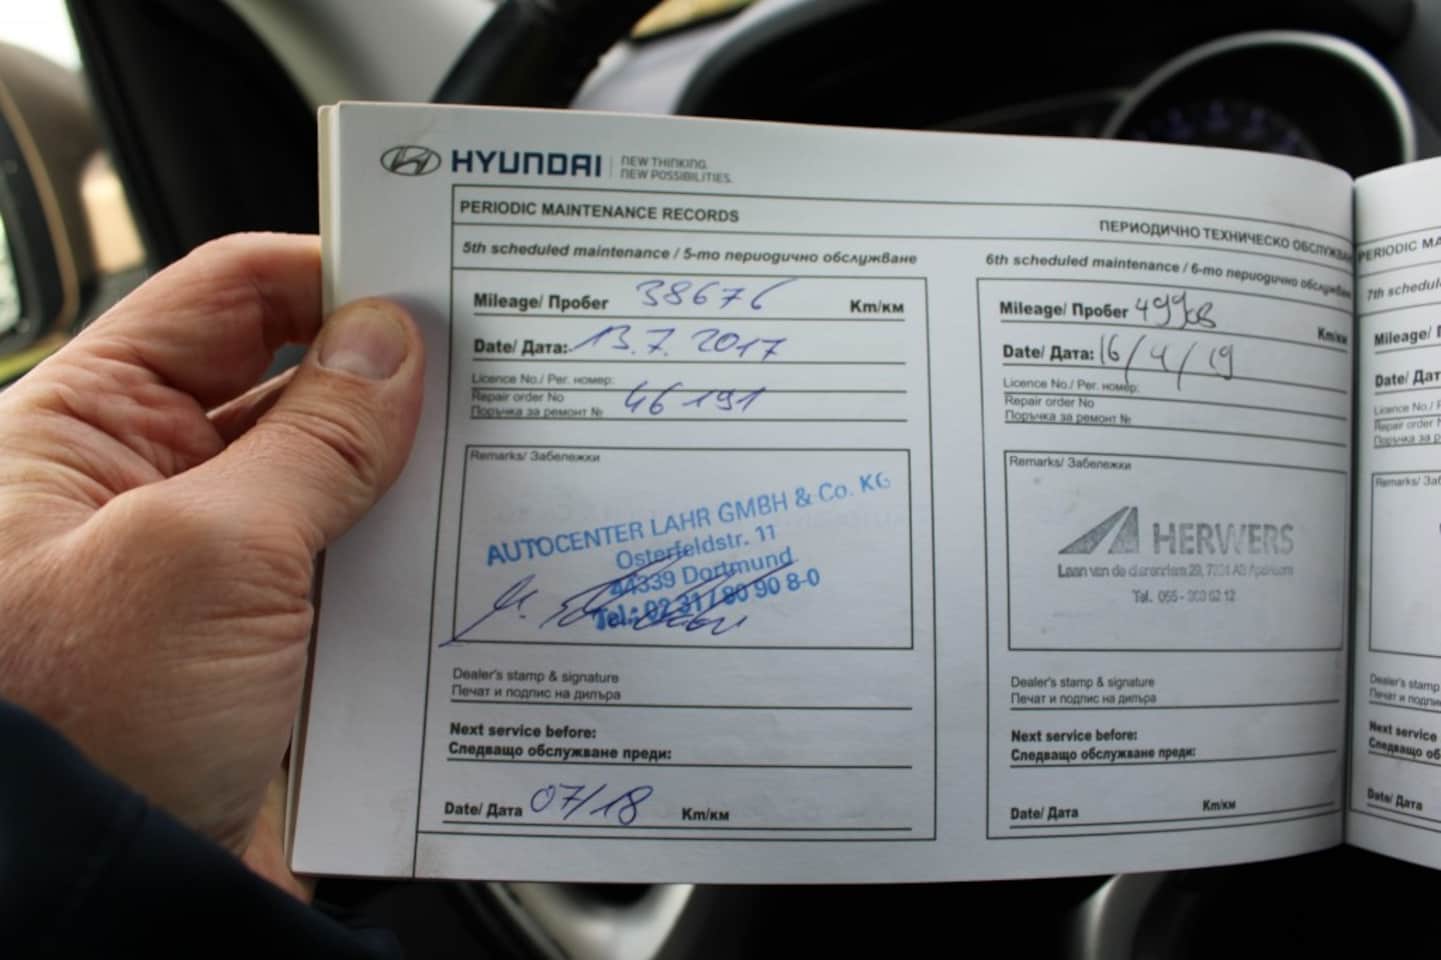 HYUNDAI NEW THINKING.
NEW POSSIBILITIES.
PERIODIC MAINTENANCE RECORDS
ПЕРИОДИЧНО ТЕХНИЧЕСКО ОБСЛУЖВА
5th scheduled maintenance / 5-то периодично обслужване
Mileage/ Пробег 38676 Km/км
Date/ Дата: 13.7.2017
Licence No./ Рег. номер:
Repair order No 46191
Поръчка за ремонт №
Remarks/ Забележки
AUTOCENTER LAHR GMBH & Co. KG
Osterfeldstr. 11
44339 Dortmund
Tel.: 02 31 / 80 90 8-0
Dealer's stamp & signature
Печат и подпис на дилъра
Next service before:
Следващо обслужване преди:
Date/ Дата 07/18 Km/км
6th scheduled maintenance / 6-то периодично обслужване
Mileage/ Пробег Km/км
Date/ Дата: 16/4/19
Licence No./ Рег. номер:
Repair order No
Поръчка за ремонт №
Remarks/ Забележки
HERWERS
Laan van de
Tel. 055-
Dealer's stamp & signature
Печат и подпис на дилъра
Next service before:
Следващо обслужване преди:
Date/ Дата Km/км
PERIODIC MA
7th schedul
Mileage/
Date/ Дат
Licence No./
Repair order
Поръчка за
Remarks/ Заб
Dealer's stamp
Печат и подпи
Next service
Следващо об
Date/ Дата